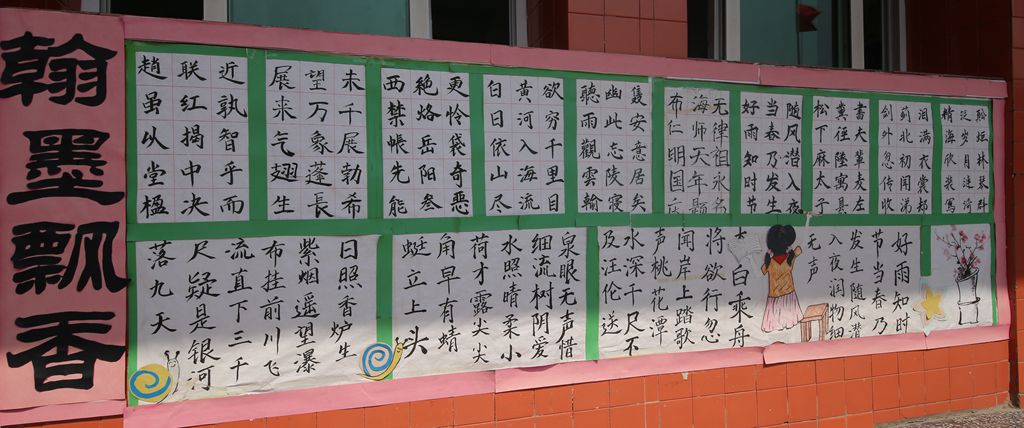 翰墨飘香
近孰智乎而
联红揭中决
趙虽以堂楹
未千展勃希
望万象蓬長
展来气翅生
更怜袋奇恶
絶烙岳阳叁
西禁帳先能
欲穷千里目
黄河入海流
白日依山尽
隻安意居矣
幽此忘陵寝
聽雨觀雲輸
无律祖永名
海师天年题
布仁明国
随风潜入夜
当春乃发生
好雨知时节
書大草友左
冀径陸寓具
松下麻太子
泪满衣裳
蓟北初闻涕
剑外忽传收
好雨知时
节当春乃
发生随风潜
入夜润物细
无声
李白乘舟
将欲行忽
闻岸上踏歌
声桃花潭
水深千尺不
及汪伦送
泉眼无声惜
细流树阴爱
水照晴柔小
荷才露尖尖
角早有蜻
蜓立上头
日照香炉生
紫烟遥望瀑
布挂前川飞
流直下三千
尺疑是银河
落九天